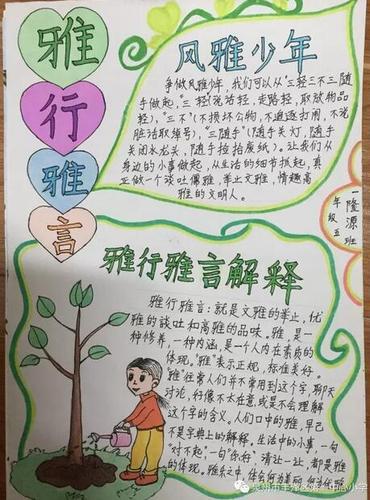 雅
行
雅
言
风雅少年
争做风雅少年，我们可以从“三轻三不三随
手做起，”三轻（说话轻，走路轻，取放物品
轻），“三不”（不损坏公物，不追逐打闹，不说
脏话取绰号），“三随手”（随手关灯，随手
关闭水龙头，随手捡拾废纸）。让我们从
身边的小事做起，从生活的细节抓起，真
正做一个谈吐儒雅，举止文雅，情趣高
雅的文明人。
一年级五班
隆源
雅行雅言解释
雅行雅言：就是文雅的举止，优
雅的谈吐和高雅的品味。雅，是一
种修养，一种内涵，是一个人内在素质的
体现。“雅”表示正规，标准美好。
“雅”往常人们并不常用到这个字，聊天
讨论，好像不太在意，或是不会理解
这个字的含义。人们口中的雅，早已
不是字典上的解释。生活中的小事，一句
“对不起”，一句“你好”，清让一让，都是雅
的体现。雅系之中，体会何为美丽